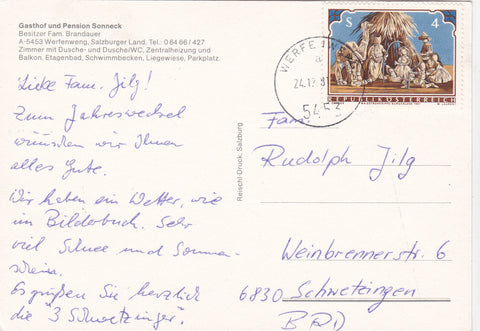 Gasthof und Pension Sonneck
Besitzer Fam. Brandauer
A-5453 Werfenweng, Salzburger Land. Tel.: 0 64 66 / 427
Zimmer mit Dusche- und Dusche/WC, Zentralheizung und
Balkon. Etagenbad, Schwimmbecken, Liegewiese, Parkplatz.
Liebe Fam. Jilg!
Zum Jahreswechsel
wünschen wir Ihnen
alles Gute.
Wir haben ein Wetter, wie
im Bilderbuch. Sehr
viel Schnee und Sonnen-
schein.
Es grüßen Sie herzlich
die "3 Schwetzinger".
Reischl-Druck, Salzburg
S 4
REPUBLIK ÖSTERREICH
WERFENW
a
24.12.8
5453
Fam.
Rudolph Jilg
Weinbrennerstr. 6
6830 Schwetzingen
BRD